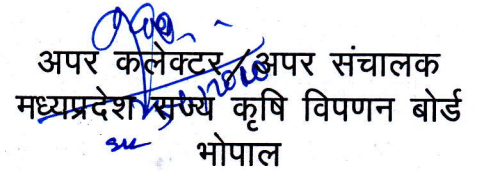 अपर कलेक्टर / अपर संचालक
मध्यप्रदेश राज्य कृषि विपणन बोर्ड
भोपाल